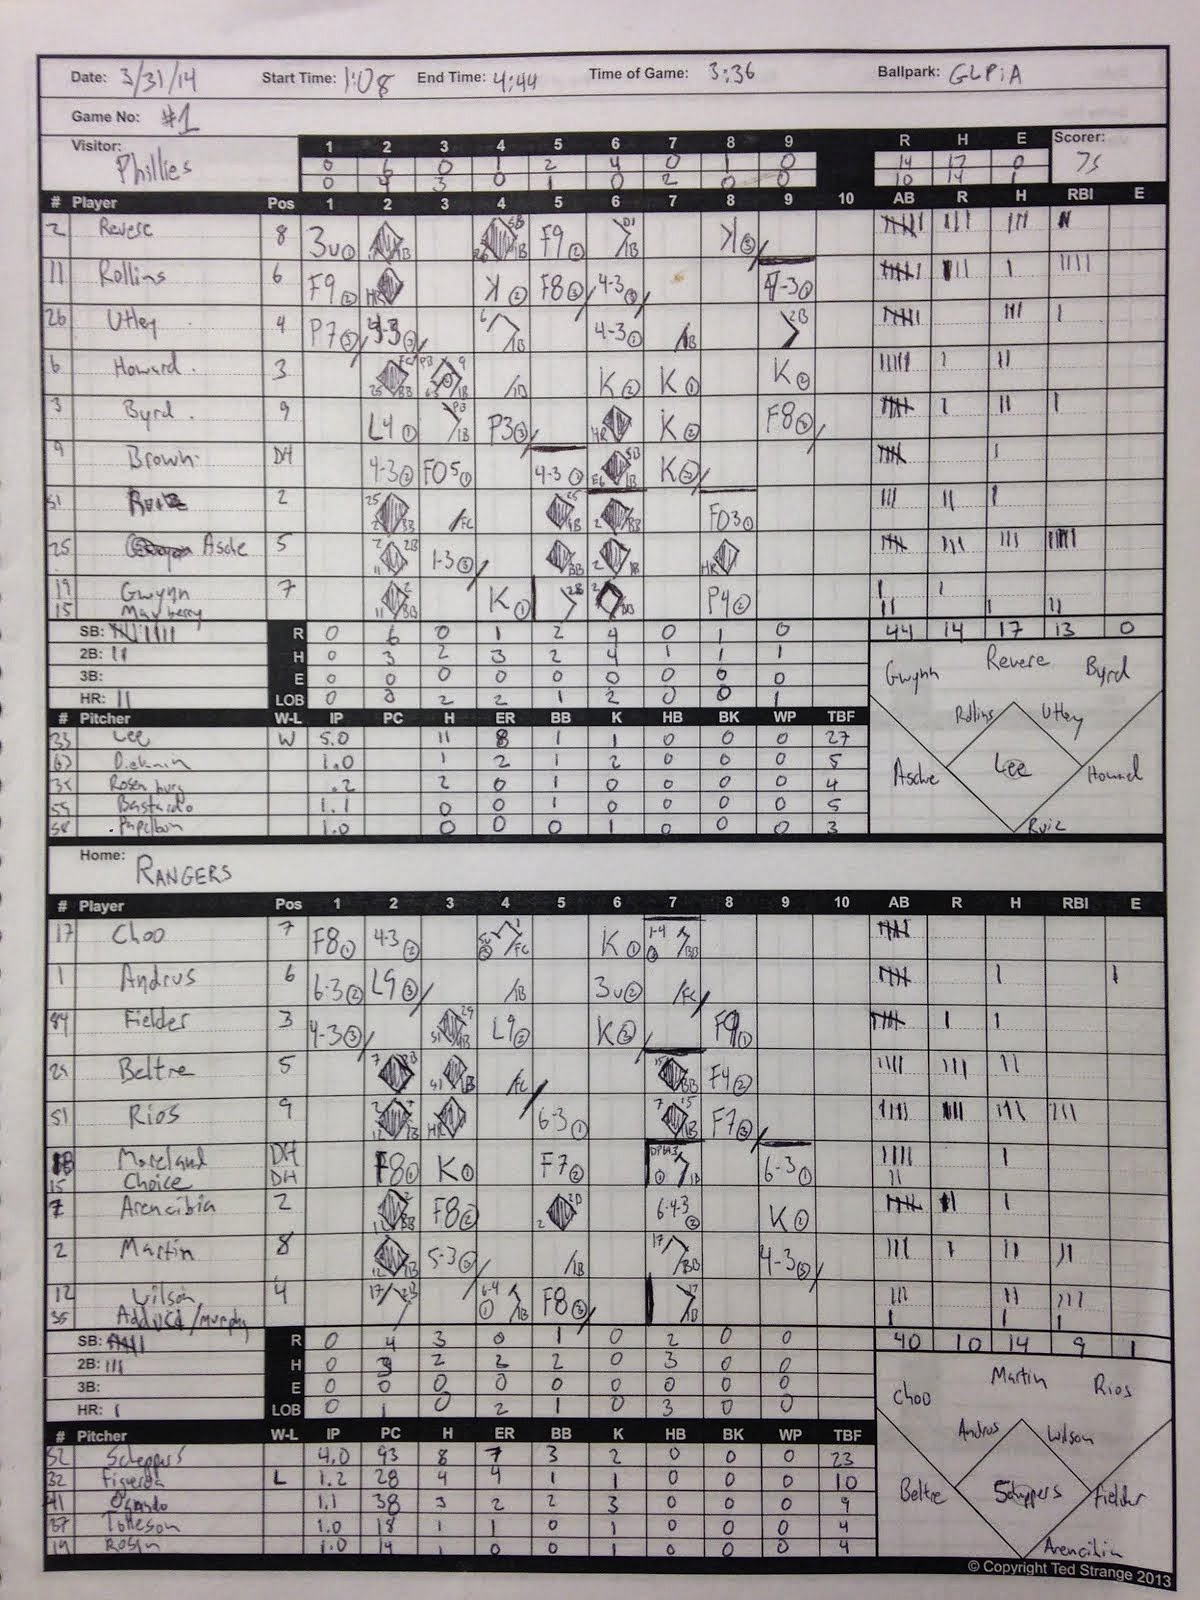 Date: 3/31/14 Start Time: 1:08 End Time: 4:44 Time of Game: 3:36 Ballpark: GLPiA
Game No: #1
Visitor: Phillies 1 2 3 4 5 6 7 8 9 R H E Scorer: JS
0 6 0 1 2 4 0 1 0 14 17 0
0 4 3 0 1 0 2 0 0 10 14 1
# Player Pos 1 2 3 4 5 6 7 8 9 10 AB R H RBI E
2 Revere 8 3u① F9② K③
11 Rollins 6 F9② HR K② F8③ 6-4-3③ 4-3①
26 Utley 4 P7③ 4-3③ 1B 4-3① 1B 2B
6 Howard 3 K② K① K②
3 Byrd 9 L4① 1B P3③ HR K② F8③
9 Brown DH 4-3② FO5① 4-3① K③
51 Ruiz 2 FC FO3①
25 Asche 5 2B 1-3③ BB HR
19 Gwynn 7 K① 2B BB P4②
15 Mayberry
SB: R 0 6 0 1 2 4 0 1 0 44 14 17 13 0
2B: H 0 3 2 3 2 4 1 1 1
3B: E 0 0 0 0 0 0 0 0 0
HR: LOB 0 0 2 2 1 2 0 0 1
Gwynn Revere Byrd
Rollins Utley
Asche Lee Howard
Ruiz
# Pitcher W-L IP PC H ER BB K HB BK WP TBF
33 Lee W 5.0 11 8 1 1 0 0 0 27
Diekman 1.0 1 2 1 2 0 0 0 5
Rosenburg .2 2 0 1 0 0 0 0 4
Bastardo 1.1 0 0 1 0 0 0 0 5
58 Papelbon 1.0 0 0 0 1 0 0 0 3
Home: RANGERS
# Player Pos 1 2 3 4 5 6 7 8 9 10 AB R H RBI E
17 Choo 7 F8① 4-3② FC K① BB
1 Andrus 6 6-3② L9③ 1B 3u② FC
84 Fielder 3 4-3③ L9② K③ F9①
29 Beltre 5 FC BB F4②
51 Rios 9 HR 6-3① F7③
18 Moreland DH F8① K① F7② 1B 6-3①
15 Choice DH
7 Arencibia 2 F8② 2B 6-4-3② K②
2 Martin 8 5-3③ 1B BB 4-3③
12 Wilson 4 2B 1B F8③ 1B
35 Adduci/Murphy
SB: R 0 4 3 0 1 0 2 0 0 40 10 14 9 1
2B: H 0 3 2 2 2 0 3 0 0
3B: E 0 0 0 0 0 0 0 0 0
HR: LOB 0 1 0 2 1 0 3 0 0
Choo Martin Rios
Andrus Wilson
Beltre Scheppers Fielder
Arencibia
# Pitcher W-L IP PC H ER BB K HB BK WP TBF
52 Scheppers 4.0 93 8 7 3 2 0 0 0 23
32 Figueroa L 1.2 28 4 4 1 1 0 0 0 10
41 Ogando 1.1 38 3 2 2 3 0 0 0 9
37 Tolleson 1.0 18 1 1 0 1 0 0 0 4
Rosin 1.0 14 1 0 0 1 0 0 0 4
© Copyright Ted Strange 2013